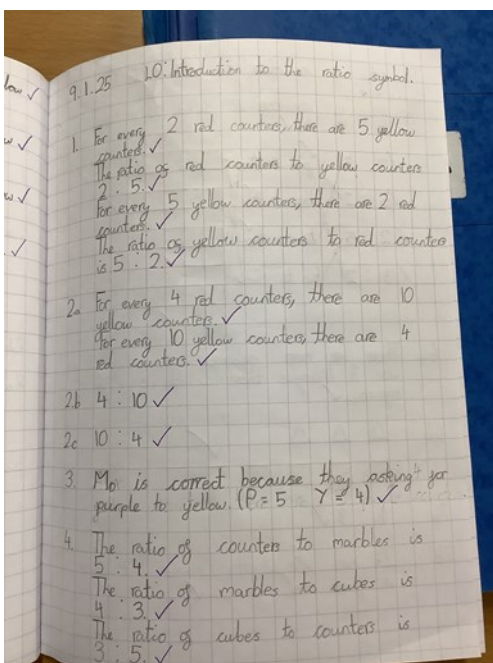 low
9.1.25 LO: Introduction to the ratio symbol.
1. For every 2 red counters, there are 5 yellow
counters.
The ratio of red counters to yellow counters
2 : 5.
For every 5 yellow counters, there are 2 red
counters.
The ratio of yellow counters to red counters
is 5 : 2.
2a For every 4 red counters, there are 10
yellow counters.
For every 10 yellow counters, there are 4
ed counters.
2.b 4 : 10
2c 10 : 4
3. Mo is correct because they asking for
purple to yellow. (P = 5 Y = 4)
4. The ratio of counters to marbles is
5 : 4.
The ratio of marbles to cubes is
4 : 3.
The ratio of cubes to counters is
3 : 5.